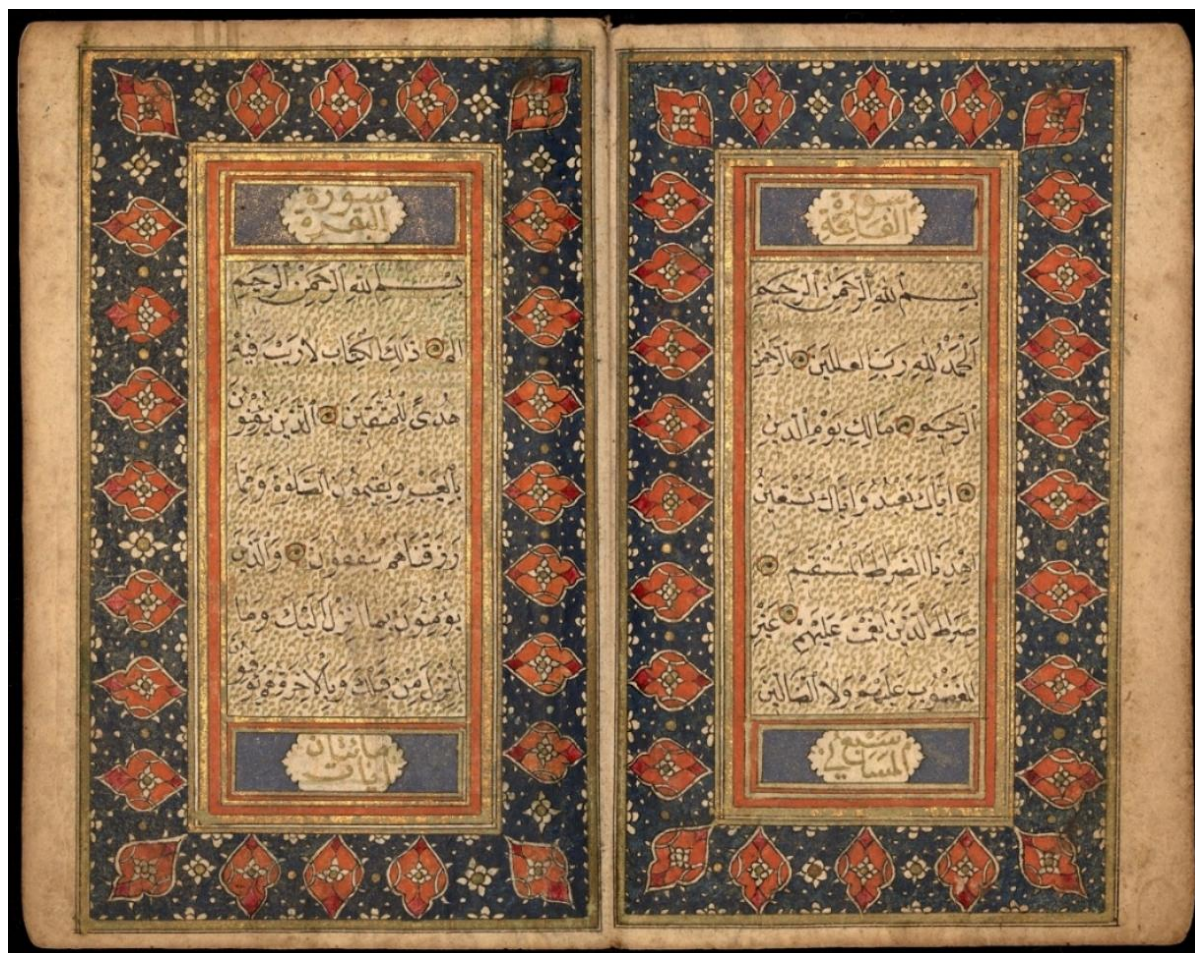 سورة
الفاتحة
بِسْمِ اللهِ الرَّحْمٰنِ الرَّحِيمِ
اَلْحَمْدُ لِلّٰهِ رَبِّ الْعالَمِينَ الرَّحْمٰنِ
الرَّحِيمِ مَالِكِ يَوْمِ الدِّينِ
اِيَّاكَ نَعْبُدُ وَاِيَّاكَ نَسْتَعِينُ
اِهْدِنَا الصِّرَاطَ الْمُسْتَقِيمَ
صِرَاطَ الَّذِينَ اَنْعَمْتَ عَلَيْهِمْ غَيْرِ
الْمَغْضُوبِ عَلَيْهِمْ وَلَا الضَّالِّينَ
سبع
سورة
البقرة
بِسْمِ اللهِ الرَّحْمٰنِ الرَّحِيمِ
الم ذٰلِكَ الْكِتَابُ لَا رَيْبَ فِيهِ
هُدًى لِلْمُتَّقِينَ اَلَّذِينَ يُؤْمِنُونَ
بِالْغَيْبِ وَيُقِيمُونَ الصَّلٰوةَ وَمِمَّا
رَزَقْنَاهُمْ يُنْفِقُونَ وَالَّذِينَ
يُؤْمِنُونَ بِمَا اُنْزِلَ اِلَيْكَ وَمَا
اُنْزِلَ مِنْ قَبْلِكَ وَبِالْاٰخِرَةِ هُمْ يُوقِنُونَ
مائتان
آيات